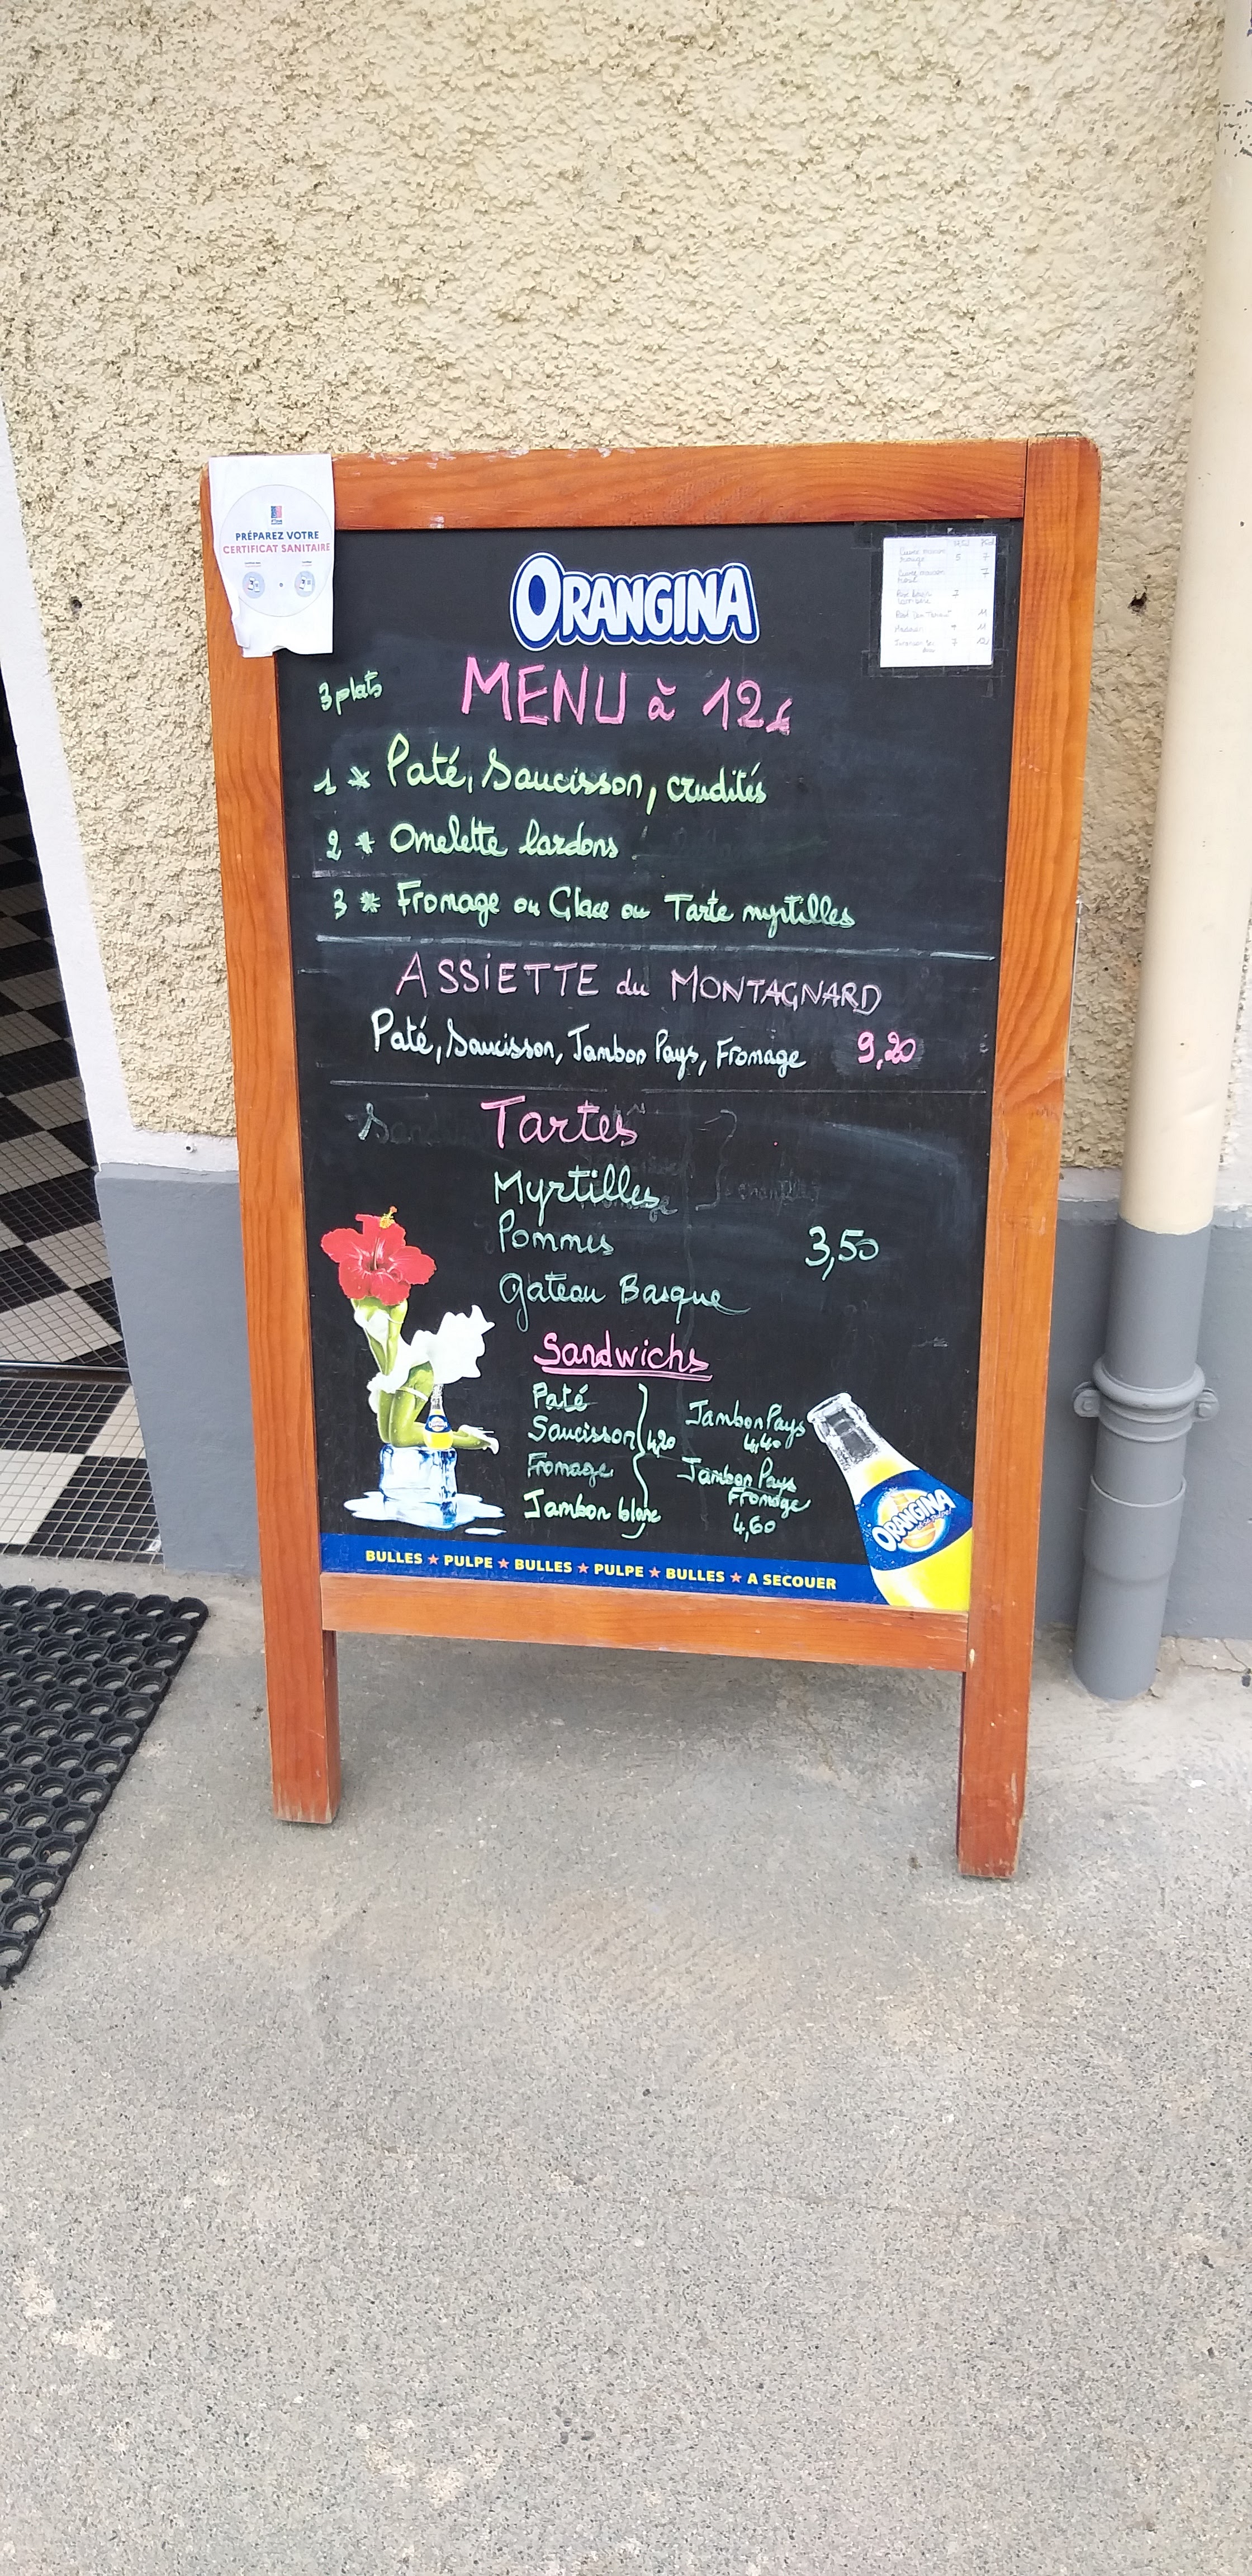 PRÉPAREZ VOTRE
CERTIFICAT SANITAIRE
ORANGINA
3 plats
MENU à 12€
1 * Paté, Saucisson, crudités
2 * Omelette lardons
3 * Fromage ou Glace ou Tarte myrtilles
ASSIETTE du MONTAGNARD
Paté, Saucisson, Jambon Pays, Fromage 9,20
Tartes
Myrtilles
Pommes 3,50
Gateau Basque
Sandwichs
Paté
Saucisson
Fromage
Jambon blanc
4,20
Jambon Pays
4,40
Jambon Pays
Fromage
4,60
ORANGINA
BULLES ★ PULPE ★ BULLES ★ PULPE ★ BULLES ★ A SECOUER